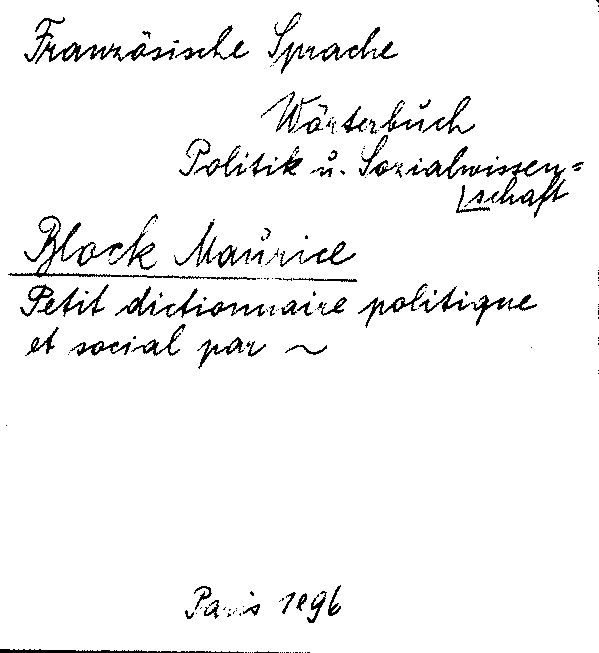 Französische Sprache
Wörterbuch
Politik u. Sozialwissen=
schaft
Block Maurice
Petit dictionnaire politique
et social par ~
Paris 1896